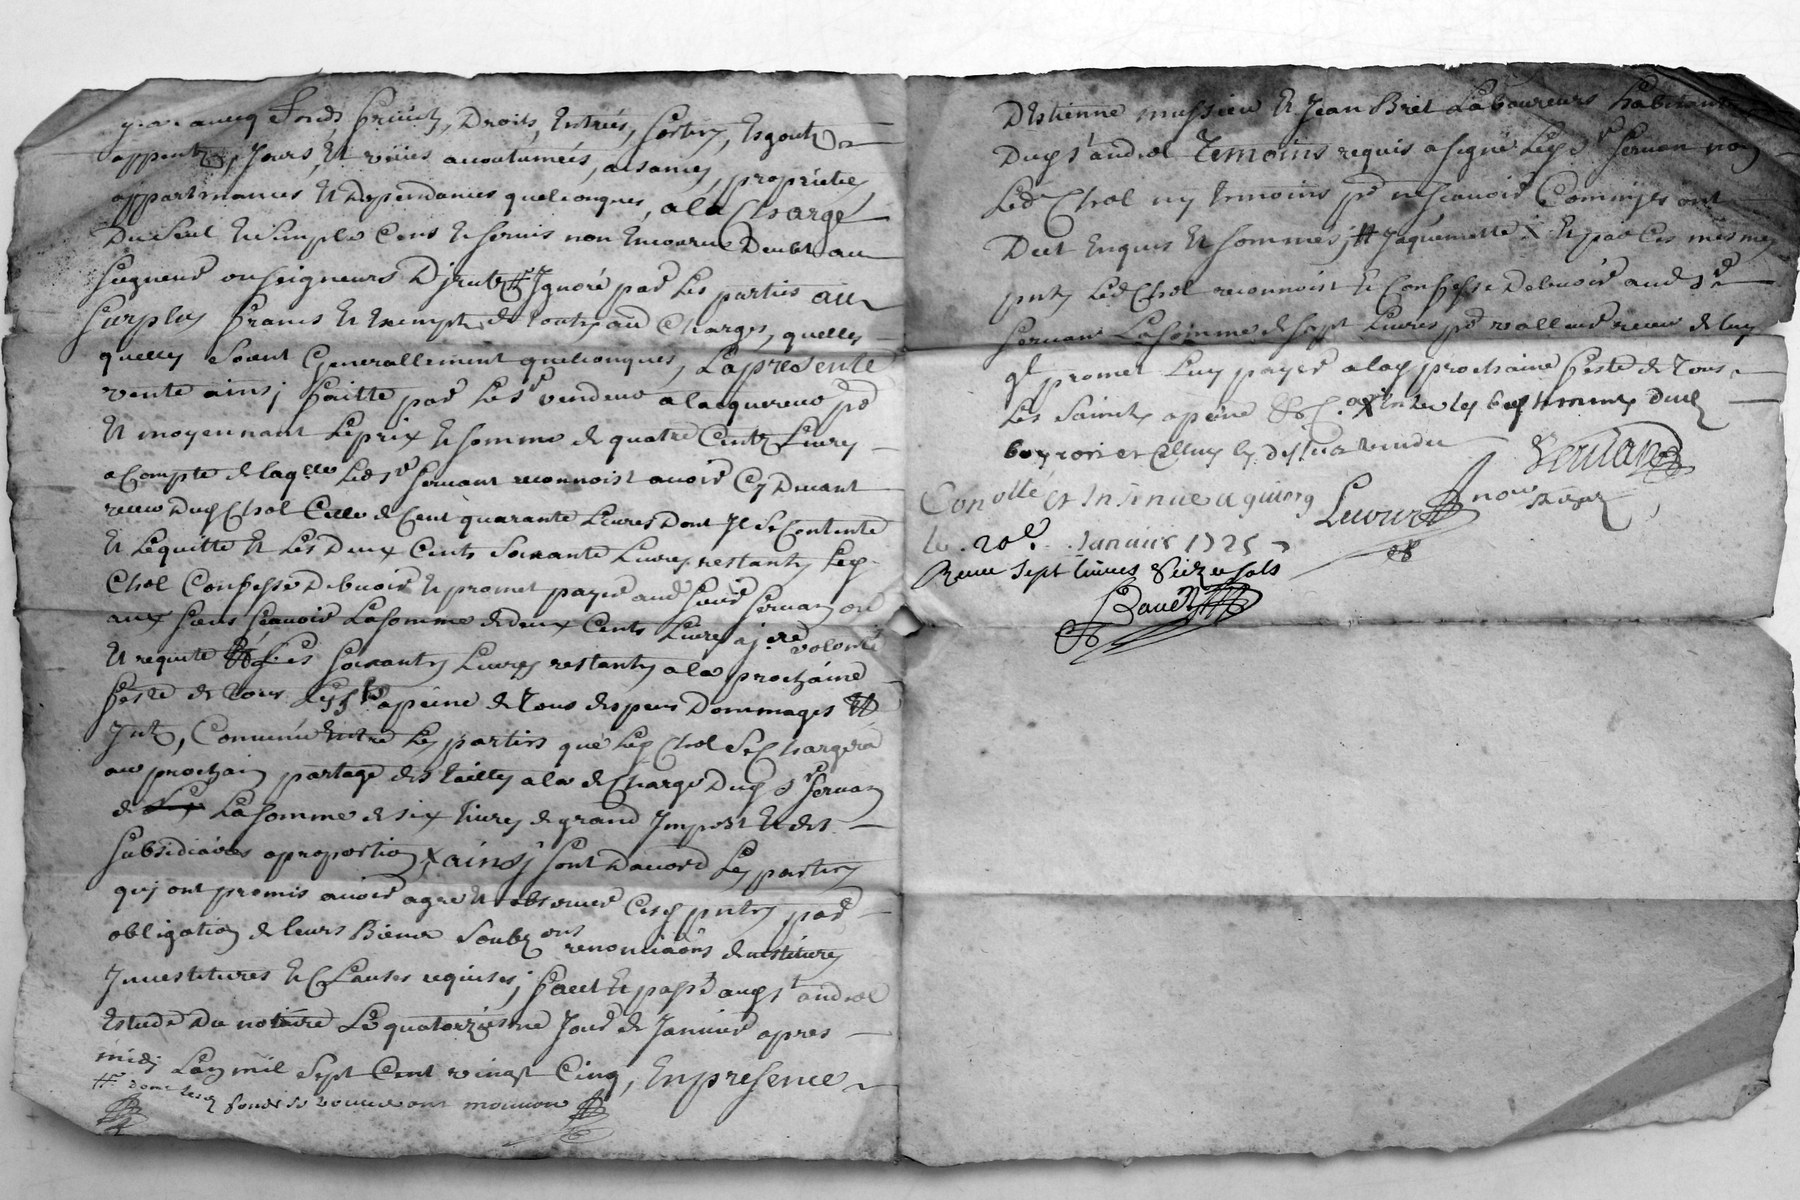 avecq fonds, fruicts, Droits, Entrées, sorties, Esgouts
appents, Jours, Et vües acoutumées, aisances, proprietes,
appartenances Et Dependances quelconques, a la Charge
Du seul Et simple Cens Et servis non Encourus Deubt au
seigneur ou seigneurs Directs # Ignoré par Les parties au
surplus francs Et Exempts de touttes au Charges, quelles
quelles soient Generallement quelconques, La presente
vente ainsj faitte par Led sr vendeur a lacquereur pd
Et moyennant Le prix Et somme de quatre Cents Livres
a Compte de laqlle Led sr servant reconnoist avoir Cy Devant
receu Dud Chol Celle de Cent quarante Livres Dont Il se Contente
Et Lequitte Et Les Deux Cents soixante Livres restants Led
Chol Confesse Debvoir Et promet payer aud sieur servan ou
aux siens sçavoir La somme de deux Cents Livres a jere volonté
Et requite Et Les soixante Livres restants a la prochaine
feste de tous Les sts a peine de tous despens Dommages Et
Ints, Convenu Entre Les parties que Led Chol se Chargera
au prochain partage des tailles a la deCharge Dud sr servan
de La somme de six livres de grand Impost Et des
subsidiaires a proportion X ainsj sont Dacord Les parties
quj ont promis avoir agre Et observer Cesd pntes par
obligation de leurs Biens soubz ons renonciaons destitures
Investitures Et Clauses requises; fait Et passé aud st andeol
Estude Du notaire Le quatorziesme Jour de Janvier apres
midj Lan mil sept Cent vingt Cinq, En presence
# dont lesd fonds se
DEstienne mussieu Et Jean Bret Laboureurs habitants
Dud st andeol Temoins requis a signé Led sr servan non
Led Chol ny temoins pd ne sçavoir Comme ils ont
Dit Enquis Et sommés; # Jaquemette X Et par Ces mesmes
pntes Led Chol reconnoist Et Confesse Debvoir aud sr
servan La somme de sept Livres pr valleur receu de luy
ql promet Luy payer a lad prochaine feste de Tous
Les saincts a peine &c.
Servan
Conollé et Insinué a
le 20e. Janvier 1725
Receu sept livres seize sols